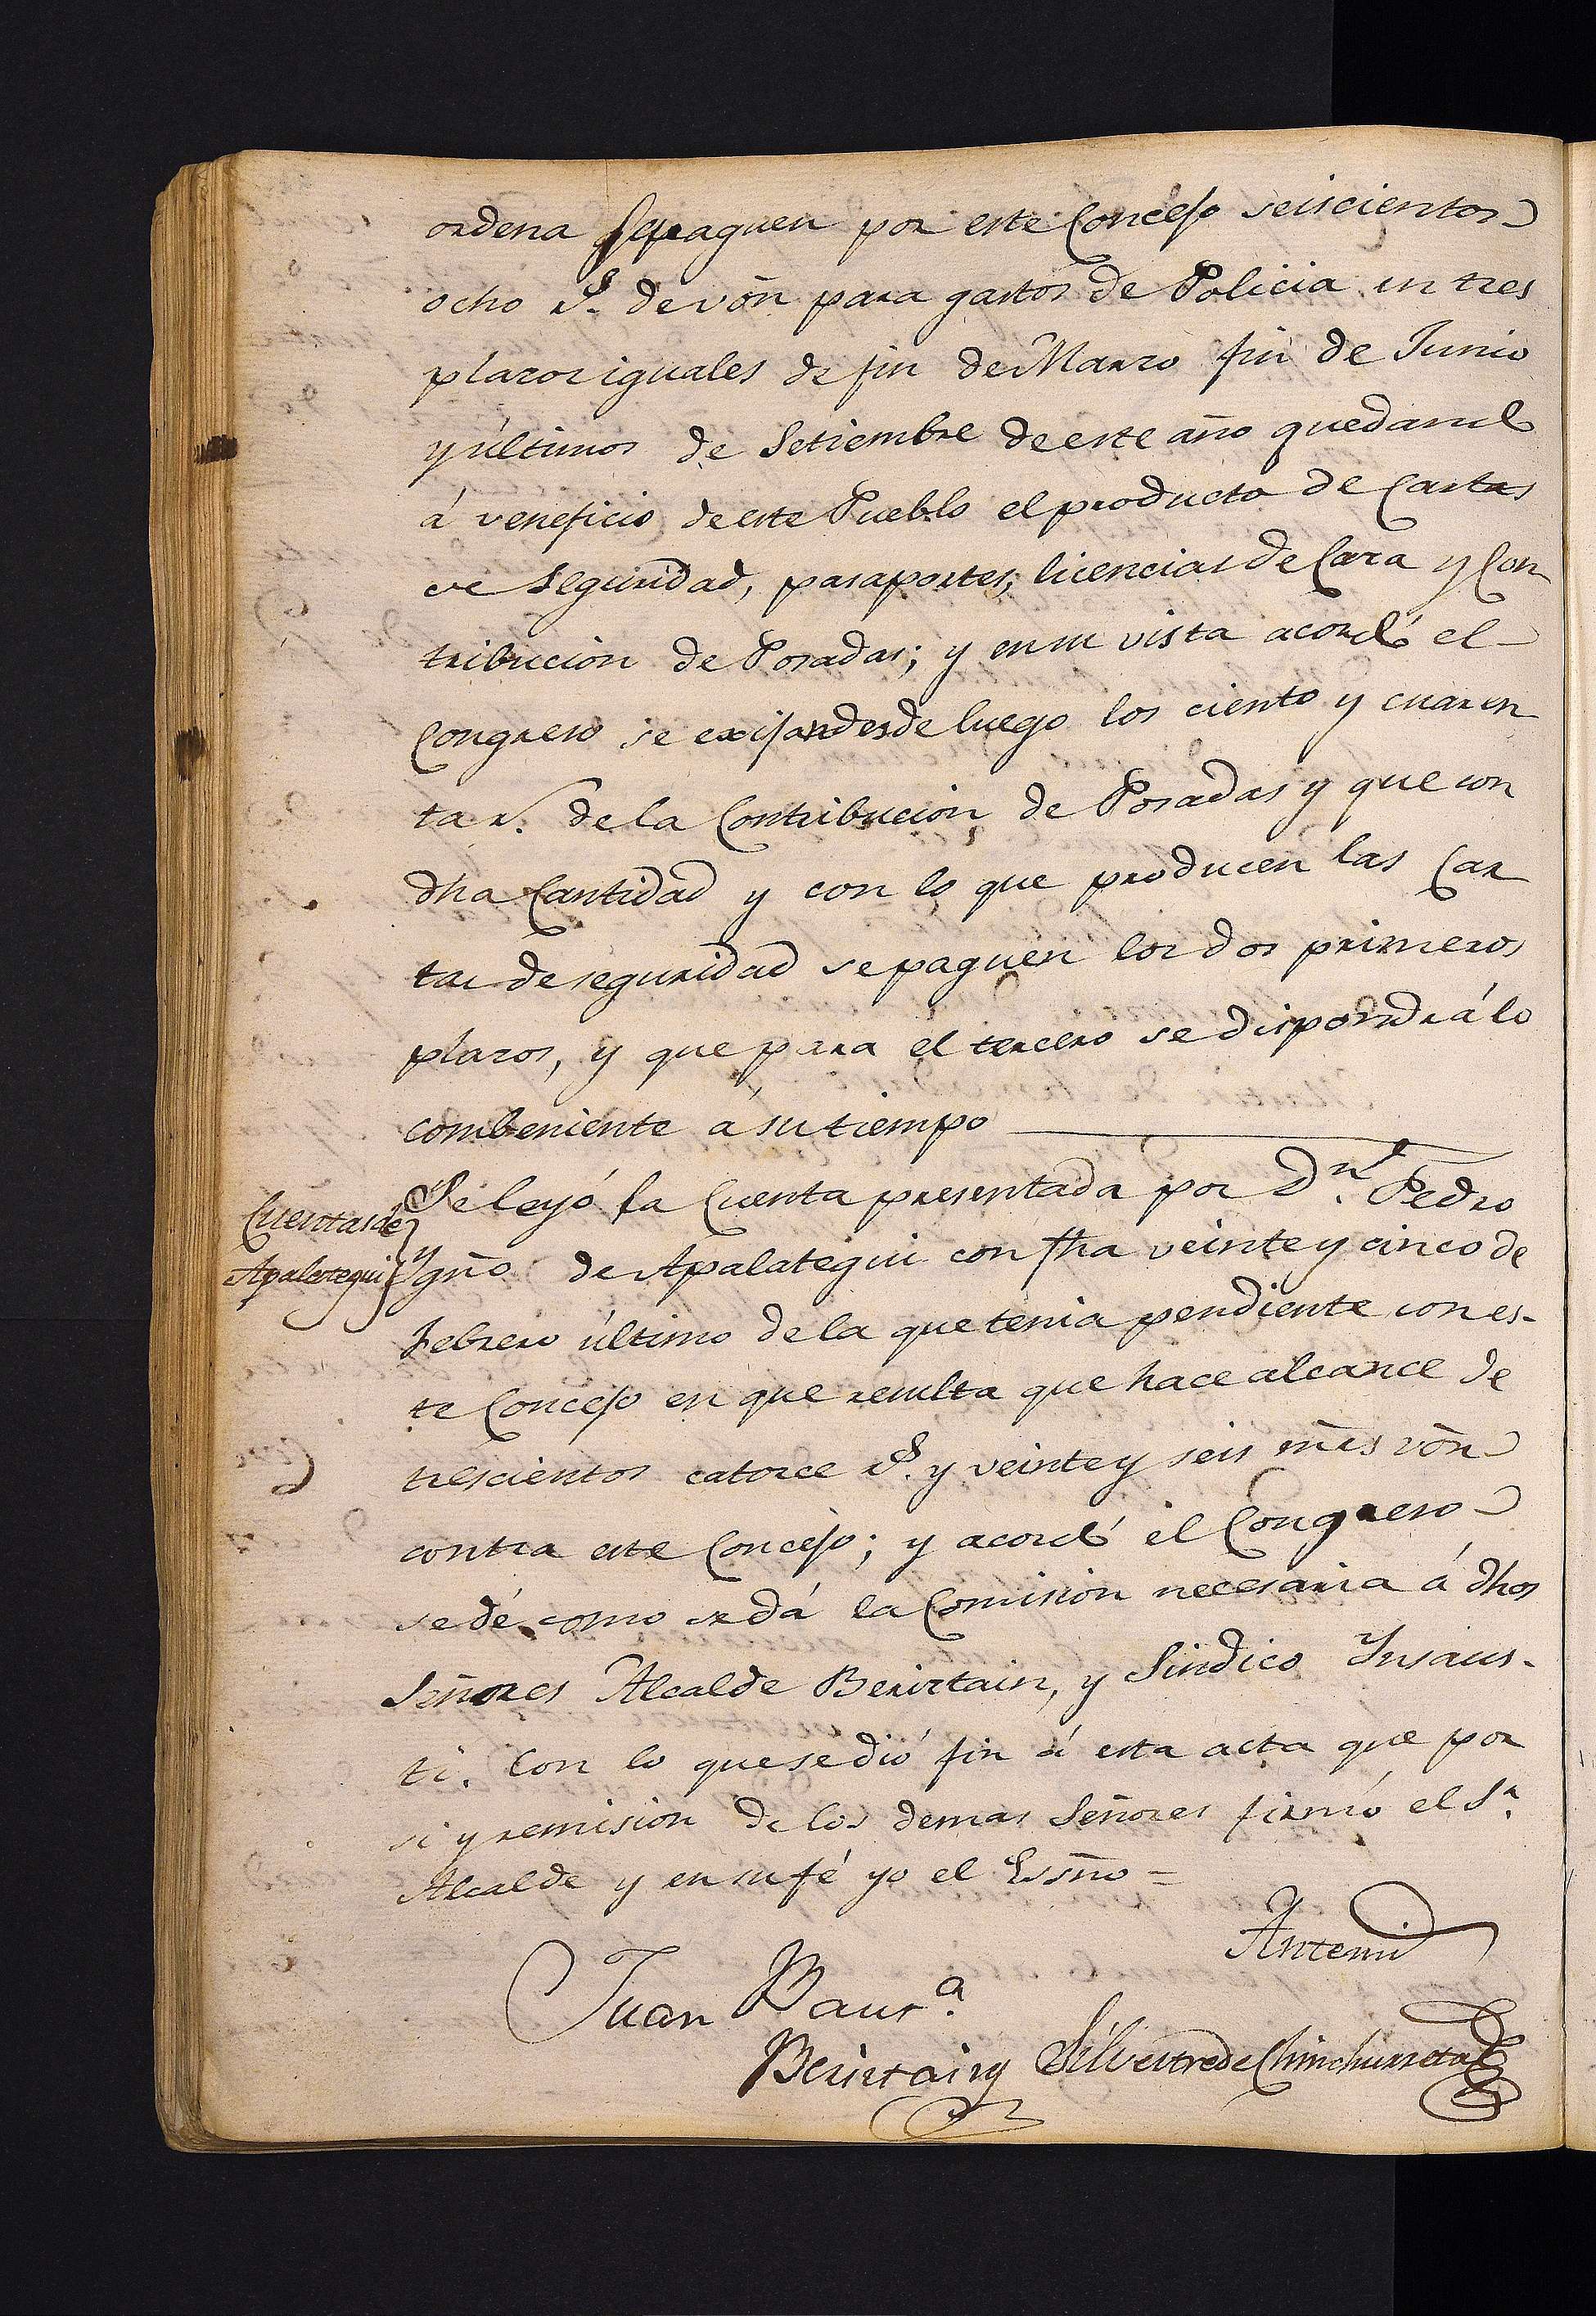 ordena se paguen por este Concejo seiscientos
ocho rs. de vōn para gastos de Policia en tres
plazos iguales de fin de Marzo fin de Junio
y últimos de Setiembre de este año quedando
á veneficio de este Pueblo el producto de Cartas
de Seguridad, pasaportes, licencias de Caza y Con
tribucion de Posadas; y en su vista acordó el
Congreso se exijan desde luego los ciento y cuaren
ta r.s de la Contribucion de Posadas y que con
dha Cantidad y con lo que producen las Car
tas de seguridad se paguen los dos primeros
plazos, y que para el tercero se dispondrá lo
combeniente á su tiempo
Cuentas de
Apalategui
Se leyó la Cuenta presentada por Dn. Pedro
Ygño de Apalategui con fha veinte y cinco de
Febrero último de la que tenia pendiente con es-
te Concejo en que resulta que hace alcance de
trescientos catorce rs. y veinte y seis mr̄s vōn
contra este Concejo; y acordó el Congreso
se dé como se dá la Comision necesaria á dhos
Señores Alcalde Beriztain, y Sindico Ynsaus-
ti. Con lo que se dió fin á esta acta que por
si y remision de los demas Señores firmó el Sr.
Alcalde y en su fé yo el Essño =
Antemi
Juan Bauta.
Beriztain Silvestre de Chinchurreta